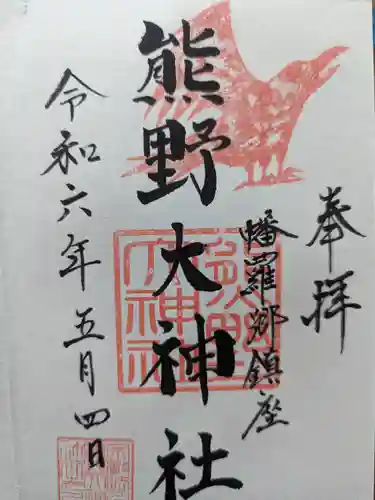 奉拝
幡羅郷鎮座
熊野大神社
令和六年五月四日